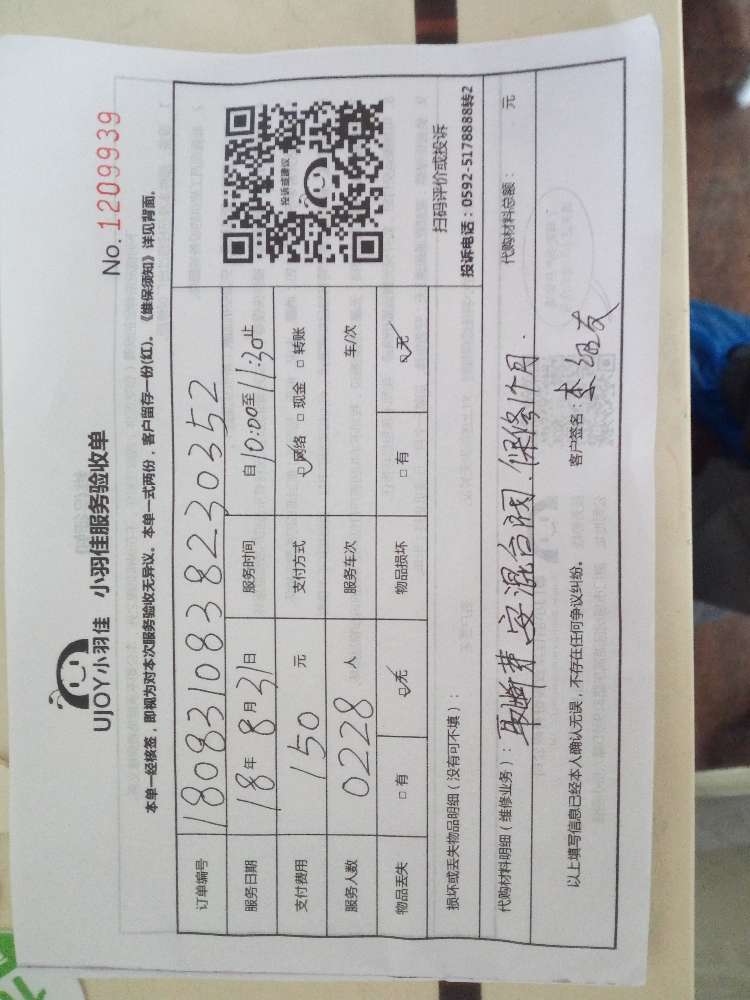 UJOY小羽佳 小羽佳服务验收单
No.1209939
本单一经核签，即视为对本次服务验收无异议。本单一式两份，客户留存一份(红)。《维保须知》详见背面。
订单编号 180831083823​0352
服务日期 18年8月31日 服务时间 自10:00至11:30止
支付费用 150元 支付方式 ☑网络 □现金 □转账
服务人数 0228人 服务车次 车/次
物品丢失 □有 ☑无 物品损坏 □有 ☑无
投诉或建议
扫码评价或投诉
投诉电话：0592-5178888转2
损坏或丢失物品明细（没有可不填）：
代购材料明细（维修业务）：取断芽安混合阀.保修1个月.
代购材料总额： 元
以上填写信息已经本人确认无误，不存在任何争议纠纷。 客户签名：